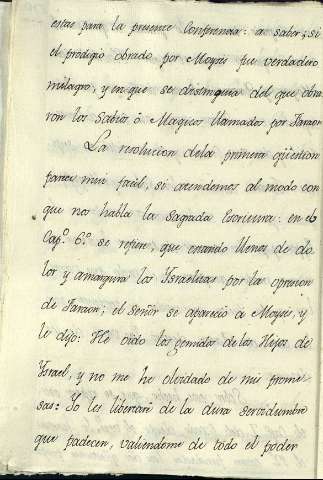 estas para la presente Conferencia: a saber; si
el prodigio obrado por Moyses fue verdadero
milagro, y en que se destinguia del que obra
ron los Sabios ò Magicos llamados por Faraon
La resolucion dela primera qüestion
parece mui facil, si atendemos al modo con
que nos habla la Sagrada Escritura: en el
Capº. 6º. se refiere, que estando llenos de do
lor y amargura los Ysraelitas por la opresion
de Faraon; el Señor se apareciò à Moyses, y
le dijo: He oido los gemidos de los Hijos de
Ysrael, y no me he olvidado de mis prome
sas: Yo les libertarè de la dura servidumbre
que padecen, valiendome de todo el poder